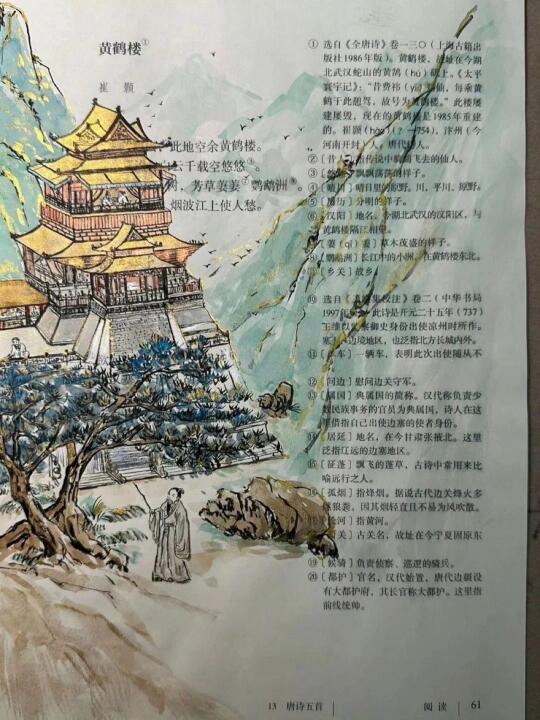 黄鹤楼①
崔 颢
此地空余黄鹤楼。
云千载空悠悠③。
树，芳草萋萋⑦鹦鹉洲⑧。
烟波江上使人愁。
① 选自《全唐诗》卷一三〇（上海古籍出
版社1986年版）。黄鹤楼，故址在今湖
北武汉蛇山的黄鹄（hú）矶上。《太平
寰宇记》：“昔费祎（yī）登仙，每乘黄
鹤于此憩驾，故号为黄鹤楼。”此楼屡
建屡毁，现在的黄鹤楼是1985年重建
的。崔颢（hào）（？—754），汴州（今
河南开封）人，唐代诗人。
②〔昔人〕指传说中骑鹤飞去的仙人。
③〔悠悠〕飘飘荡荡的样子。
④〔晴川〕晴日里的原野。川，平川、原野。
⑤〔历历〕分明的样子。
⑥〔汉阳〕地名，今湖北武汉的汉阳区，与
黄鹤楼隔江相望。
⑦〔萋（qī）萋〕草木茂盛的样子。
⑧〔鹦鹉洲〕长江中的小洲，在黄鹤楼东北。
⑨〔乡关〕故乡。
⑩ 选自《集校注》卷二（中华书局
1997年）。此诗是开元二十五年（737）
王维以监察御史身份出使凉州时所作。
塞，边境地区，也泛指北方长城内外。
⑪〔单车〕一辆车，表明此次出使随从不
⑫〔问边〕慰问边关守军。
⑬〔属国〕典属国的简称。汉代称负责少
数民族事务的官员为典属国，诗人在这
里借指自己出使边塞的使者身份。
⑭〔居延〕地名，在今甘肃张掖北。这里
泛指辽远的边塞地区。
⑮〔征蓬〕飘飞的蓬草，古诗中常用来比
喻远行之人。
⑯〔孤烟〕指烽烟。据说古代边关烽火多
燃狼粪，因其烟轻直且不易为风吹散。
⑰〔长河〕指黄河。
关〕古关名，故址在今宁夏固原东
⑲〔候骑〕负责侦察、巡逻的骑兵。
⑳〔都护〕官名，汉代始置，唐代边疆设
有大都护府，其长官称大都护。这里指
前线统帅。
13 唐诗五首
阅 读 61